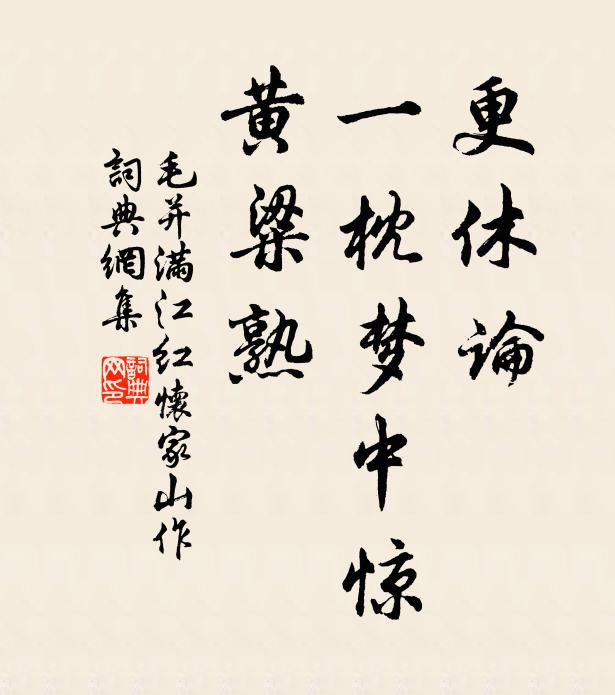 更休論
一枕梦中惊
黄粱熟
毛并满江红懷家山作
詞典網集
詞典網印